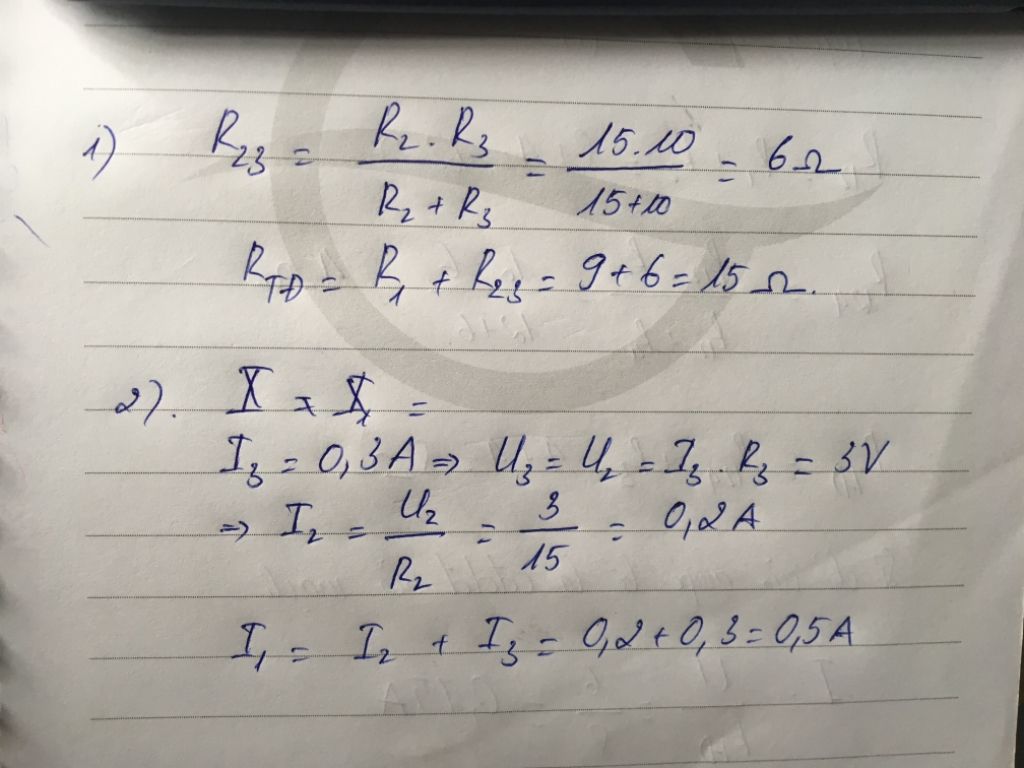 1) R23 = R2 . R3 / R2 + R3 = 15.10 / 15+10 = 6Ω
RTD = R1 + R23 = 9+6 = 15Ω.
2). I = I1 =
I3 = 0,3A => U3 = U2 = I3 . R3 = 3V
=> I2 = U2 / R2 = 3 / 15 = 0,2A
I1 = I2 + I3 = 0,2+0,3 = 0,5A